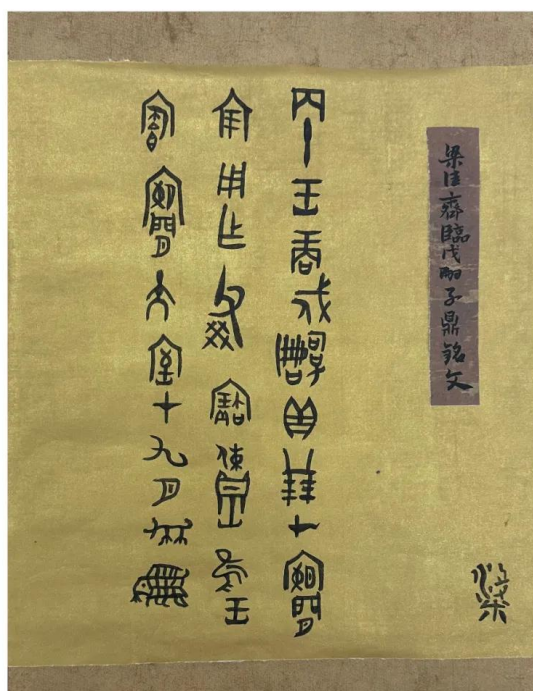 梁佳齋臨戍嗣子鼎銘文
丙午王商戍嗣子貝廿朋才闌
宗用乍父癸寶隹王
闌大室才九月犬魚